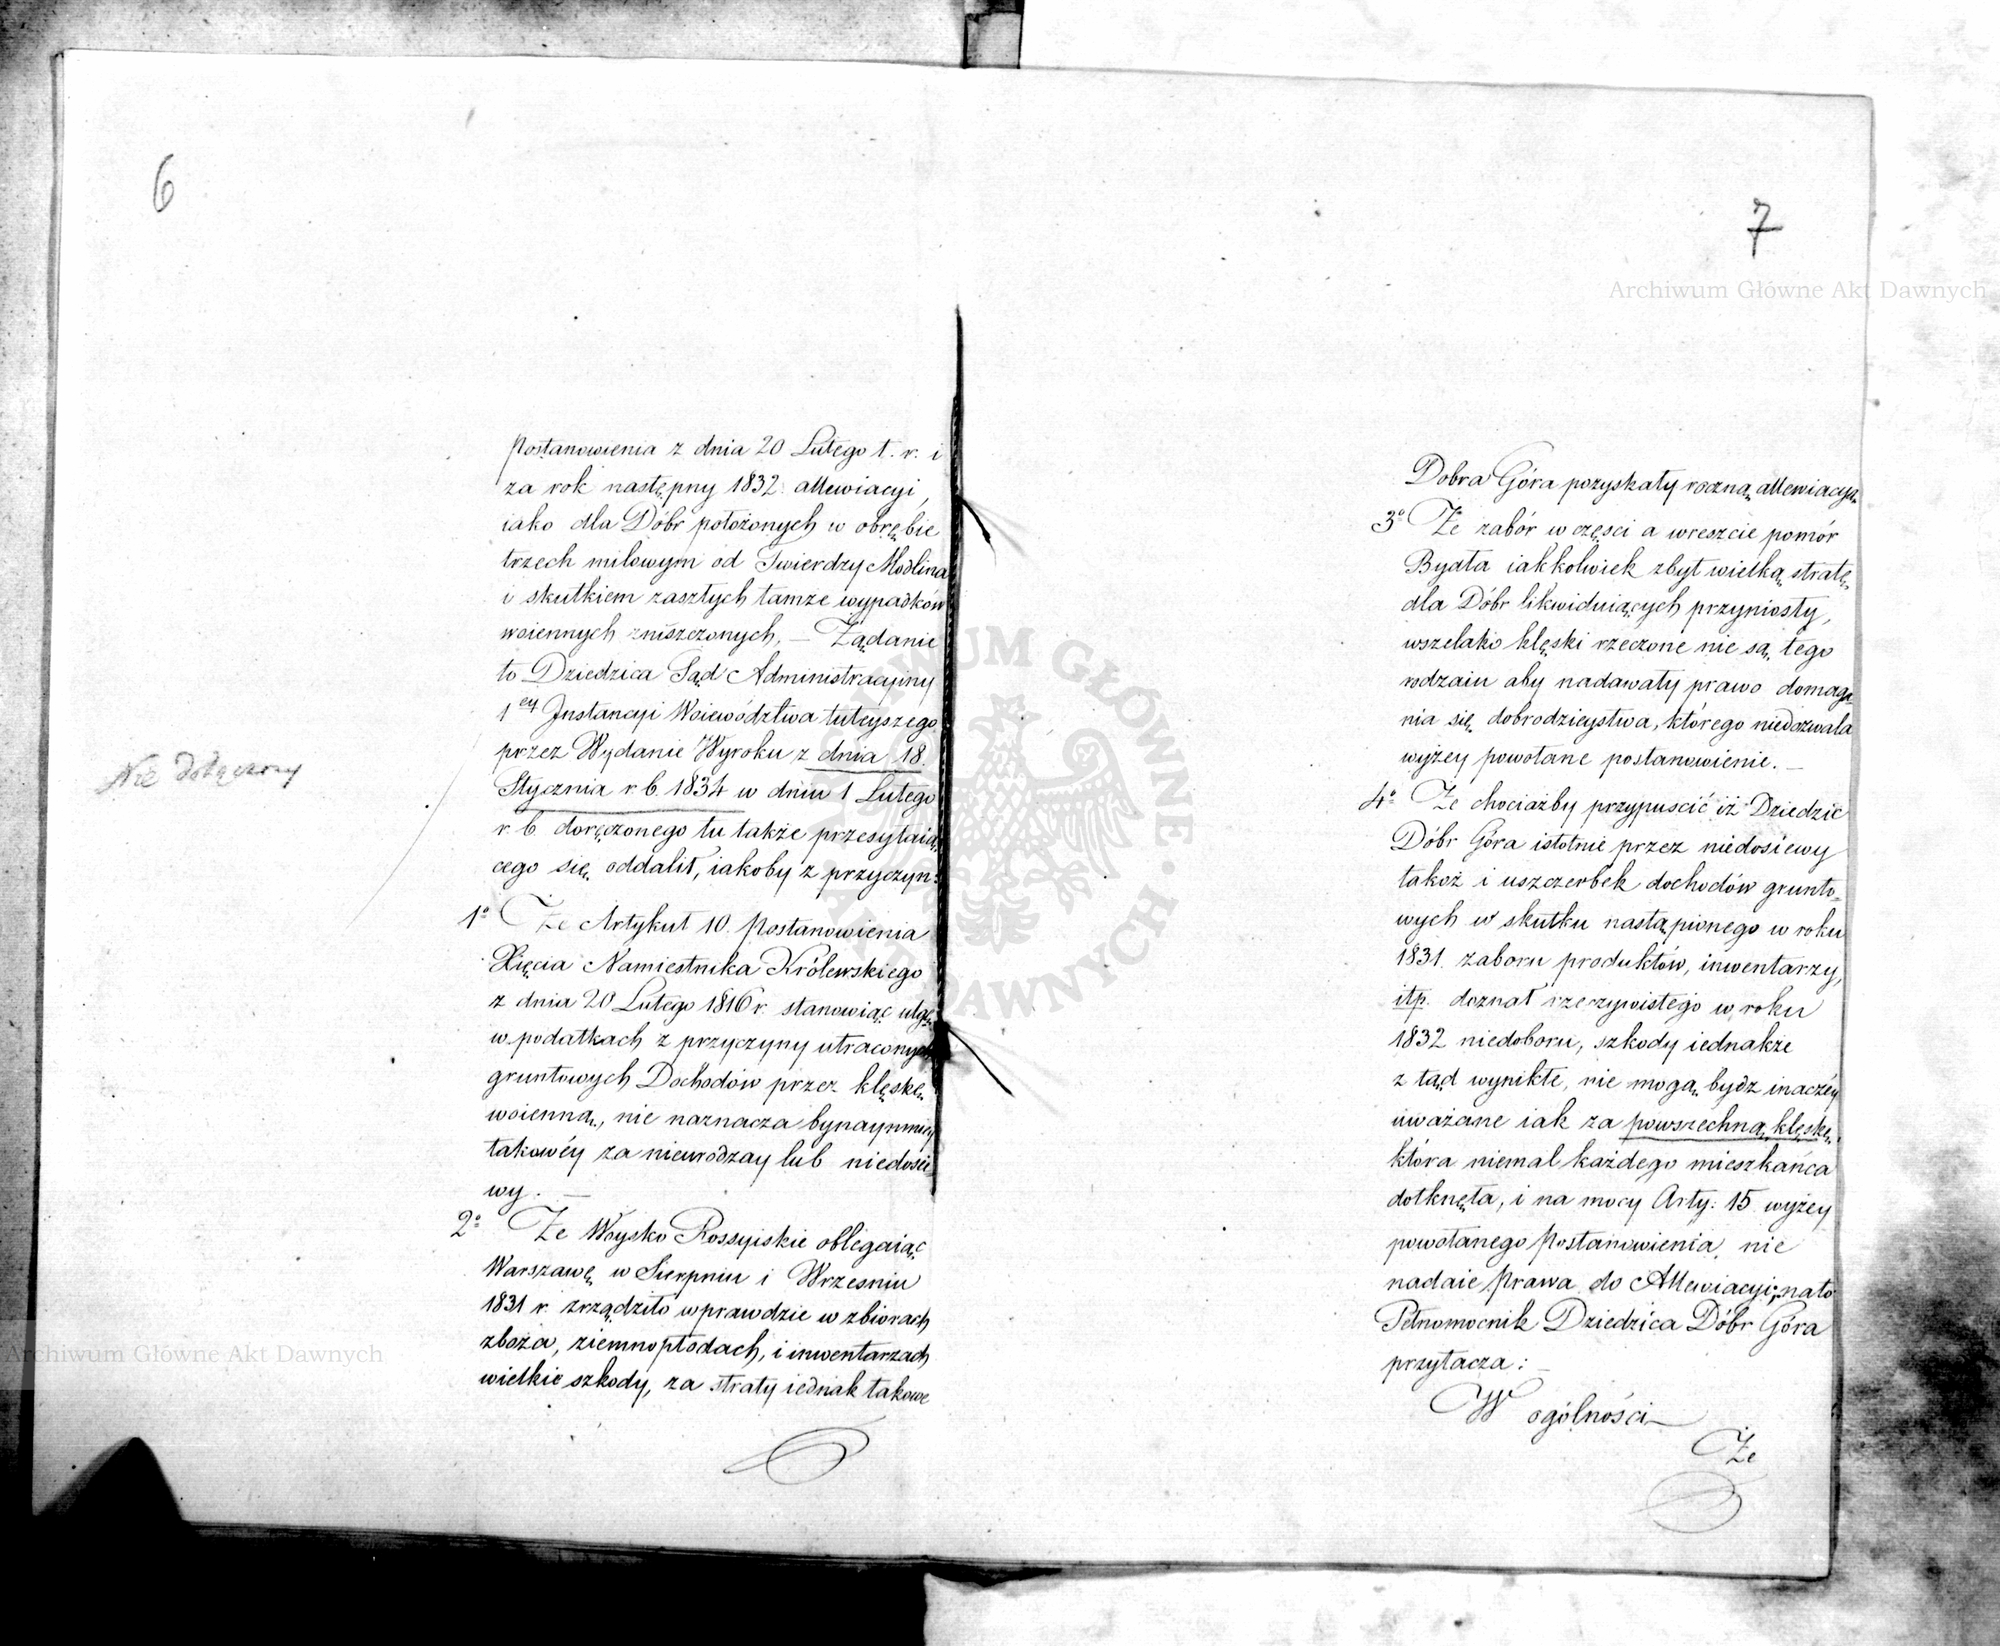 6
Postanowienia z dnia 20 Lutego t. r. i
za rok następny 1832 allewiacyi,
iako dla Dóbr położonych w obrębie
trzech milowym od Twierdzy Modlina
i skutkiem zaszłych tamże wypadków
woiennych zniszczonych. — Żądanie
to Dziedzica Sąd Administracyiny
1ey Instancyi Woiewództwa tuteyszego
przez Wydanie Wyroku z dnia 18.
Stycznia r. b. 1834 w dniu 1 Lutego
r. b. doręczonego tu także przesyłaią
cego się, oddalił, iakoby z przyczyn:
Nie dołączony
1º Że Artykuł 10. Postanowienia
Xięcia Namiestnika Królewskiego
z dnia 20 Lutego 1816 r. stanowiąc ulgę
w podatkach z przyczyny utraconych
gruntowych Dochodów przez klęskę
woienną, nie naznacza bynaymniey
takowéy za nieurodzay lub niedosie
wy. —
2º Że Woysko Rossyiskie oblegaiąc
Warszawę w Sierpniu i Wrzesniu
1831 r. zrządziło wprawdzie w zbiorach
zboża, ziemnopłodach, i inwentarzach
wielkie szkody, za straty iednak takowe
7
Dobra Góra pozyskały roczną allewiacyą.
3º Że zabór w części a wreszcie pomór
Bydła iakkolwiek zbyt wielką stratę
dla Dóbr likwiduiących przyniosły,
wszelako klęski rzeczone nie są tego
rodzaiu aby nadawały prawo domaga
nia się dobrodzieystwa, którego niedozwala
wyżey powołane postanowienie. —
4º Że chociażby przypuscić iż Dziedzic
Dóbr Góra istotnie przez niedosiewy
takoż i uszczerbek dochodów grunto
wych w skutku nastąpionego w roku
1831. zaboru produktów, inwentarzy,
itp. doznał rzeczywistego w roku
1832 niedoboru, szkody iednakże
z tąd wynikłe, nie mogą bydz inaczéy
uważane iak za powszechną klęskę,
która niemal każdego mieszkańca
dotknęła, i na mocy Arty: 15 wyżey
powołanego Postanowienia, nie
nadaie Prawa do Allewiacyi; nato
Pełnomocnik Dziedzica Dóbr Góra
przytacza: —
W ogólności —
Że
Archiwum Główne Akt Dawnych
Archiwum Główne Akt Dawnych